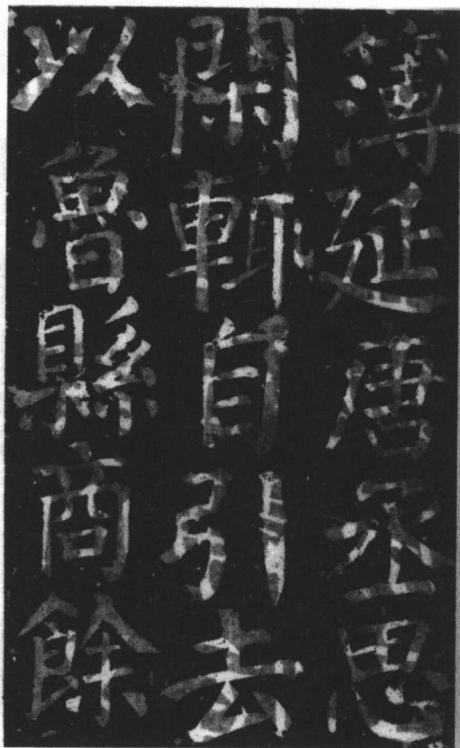 簿延唐丞思
閑輒自引去
以魯縣商餘